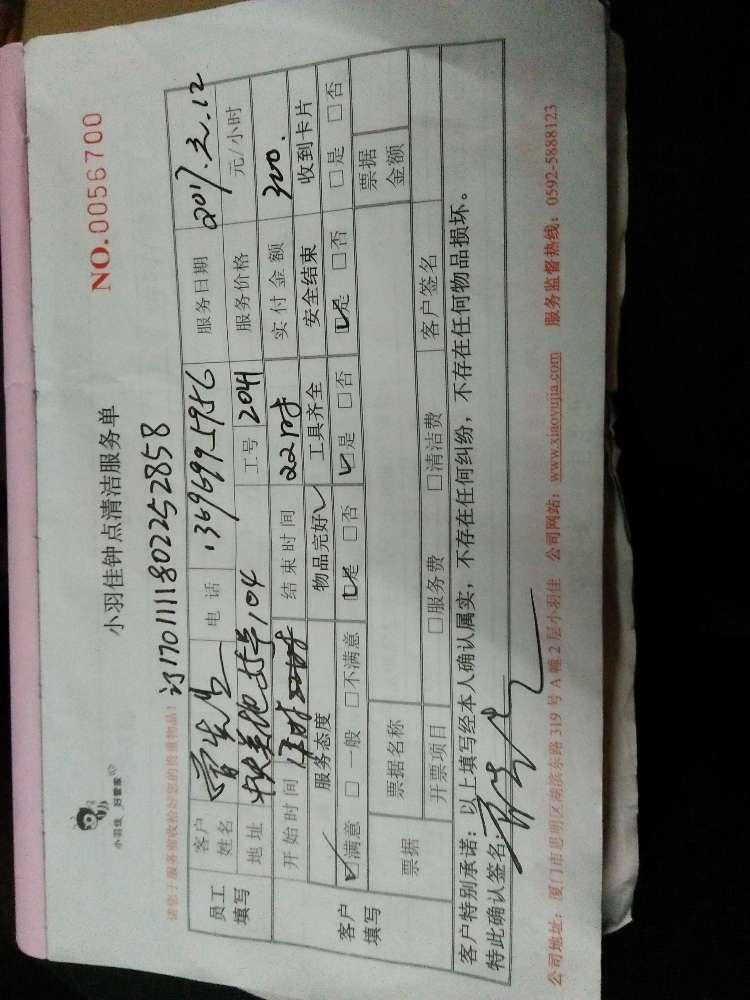 小羽佳 好管家
小羽佳钟点清洁服务单
NO.0056700
请您于服务前收拾好您的贵重物品!
订1701111802252858
员工填写 客户姓名 曾先生 电话 13696995956 服务日期 2017.元.12
地址 55号104 工号 2041 服务价格 元/小时
开始时间 结束时间 22时 实付金额 300.
客户填写 服务态度 物品完好 工具齐全 安全结束 收到卡片
☑满意 □一般 □不满意 ☑是 □否 ☑是 □否 ☑是 □否 □是 □否
票据 票据名称 票据金额
开票项目 □服务费 □清洁费 客户签名
客户特别承诺:以上填写经本人确认属实,不存在任何纠纷,不存在任何物品损坏。
特此确认签名:
公司地址:厦门市思明区湖滨东路319号A幢2层小羽佳 公司网站:www.xiaoyujia.com 服务监督热线:0592-5888123